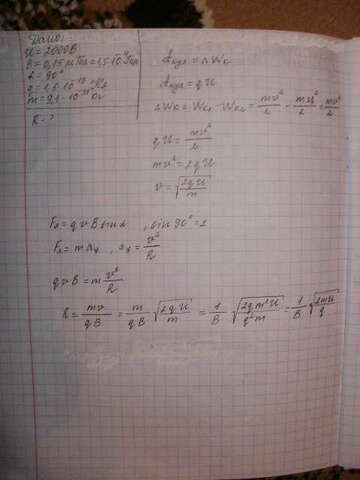 Дано:
U = 2000В
B = 0,15 мТл = 1,5·10⁻⁴Тл
α = 90°
q = 1,6·10⁻¹⁹Кл
m = 9,1·10⁻³¹кг
R - ?
Aкул = ΔWк
Aкул = qU
ΔWк = Wк₁ - Wк₂ = mv²/2 - mv²/2 = mv²/2
qU = mv²/2
mv² = 2qU
v = √(2qU/m)
Fл = qvB sin α , sin 90° = 1
Fл = m aц , aц = v²/R
qvB = m v²/R
R = mv/qB = m/qB √(2qU/m) = 1/B √(2qm²U/q²m) = 1/B √(2mU/q)